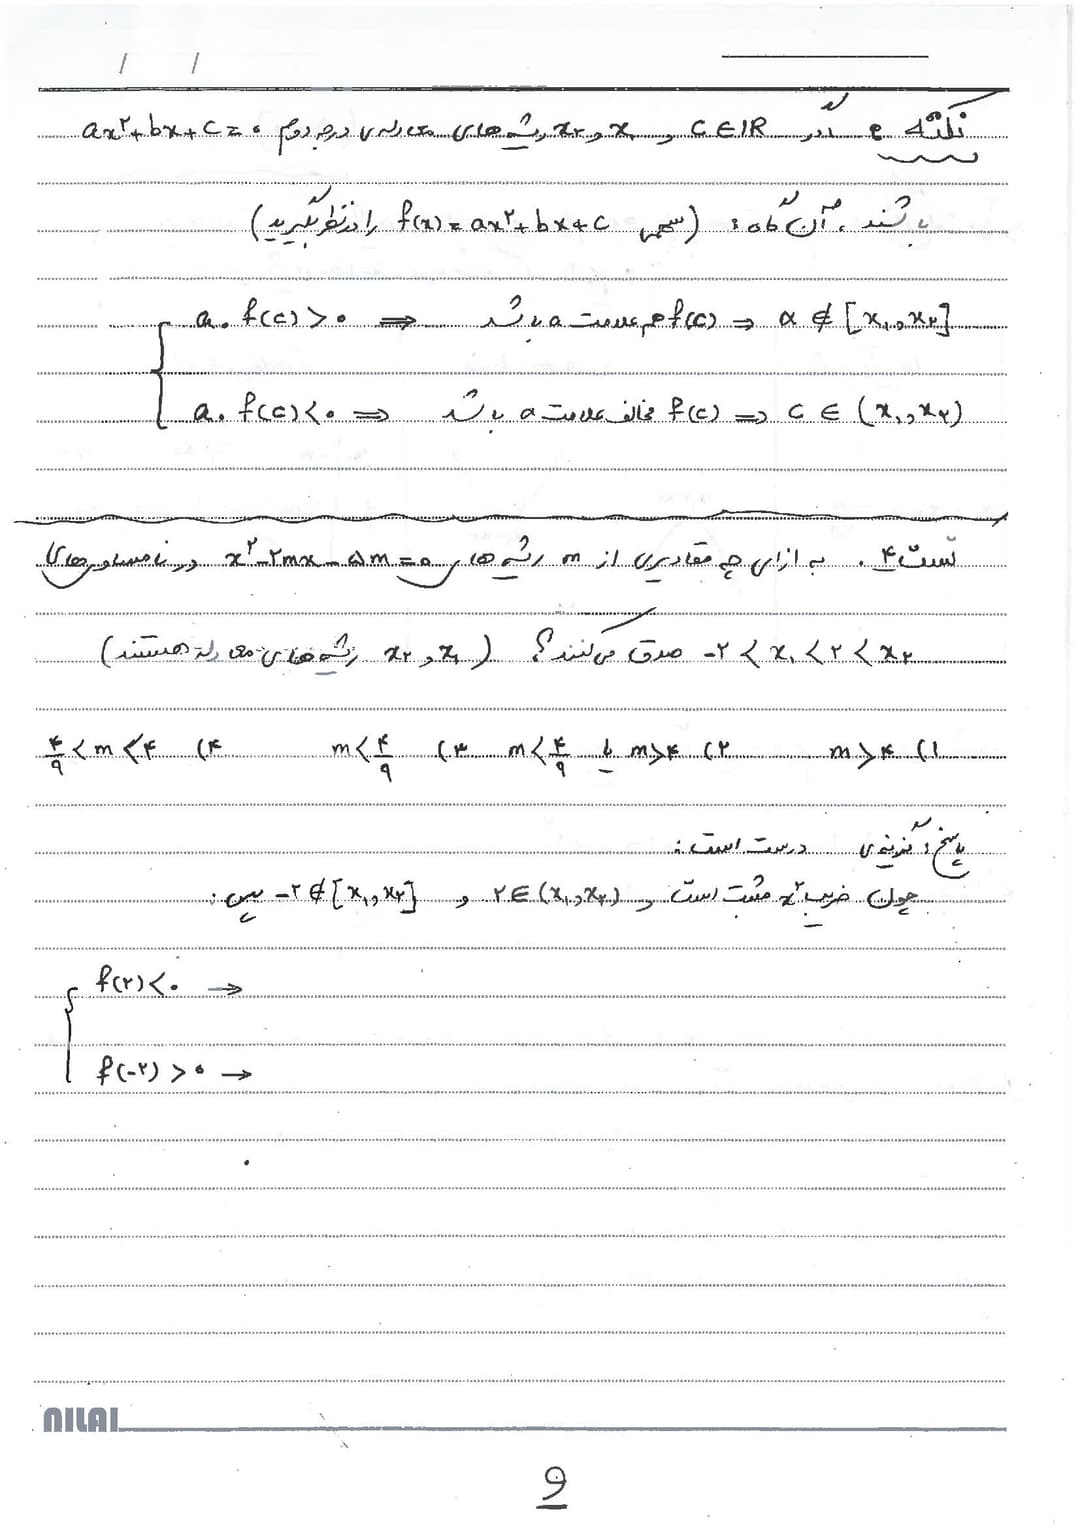 / /
نکته ۶ اگر C∈IR و x₁ و x₂ ریشه‌های معادله‌ی درجه دوم ax²+bx+c=۰
باشند، آن گاه: (سهمی f(x)=ax²+bx+c را در نظر بگیرید)
a.f(c)>۰ ⇒ f(c) هم علامت a باشد ⇒ α∉[x₁,x₂]
a.f(c)<۰ ⇒ f(c) مخالف علامت a باشد ⇒ c∈(x₁,x₂)
تست ۴. به ازای چه مقادیری از m ریشه‌های x²-۲mx-۵m=۰ در نامساوی‌های
-۲<x₁<۲<x₂ صدق می‌کنند؟ (x₁ و x₂ ریشه‌های معادله هستند)
۱) m>۴ ۲) m>۴ یا m<۴/۹ ۳) m<۴/۹ ۴) ۴/۹<m<۴
پاسخ: گزینه‌ی درست است:
چون ضریب x² مثبت است و ۲∈(x₁,x₂) و -۲∉[x₁,x₂] پس:
f(۲)<۰ →
f(-۲)>۰ →
NILAI
۶